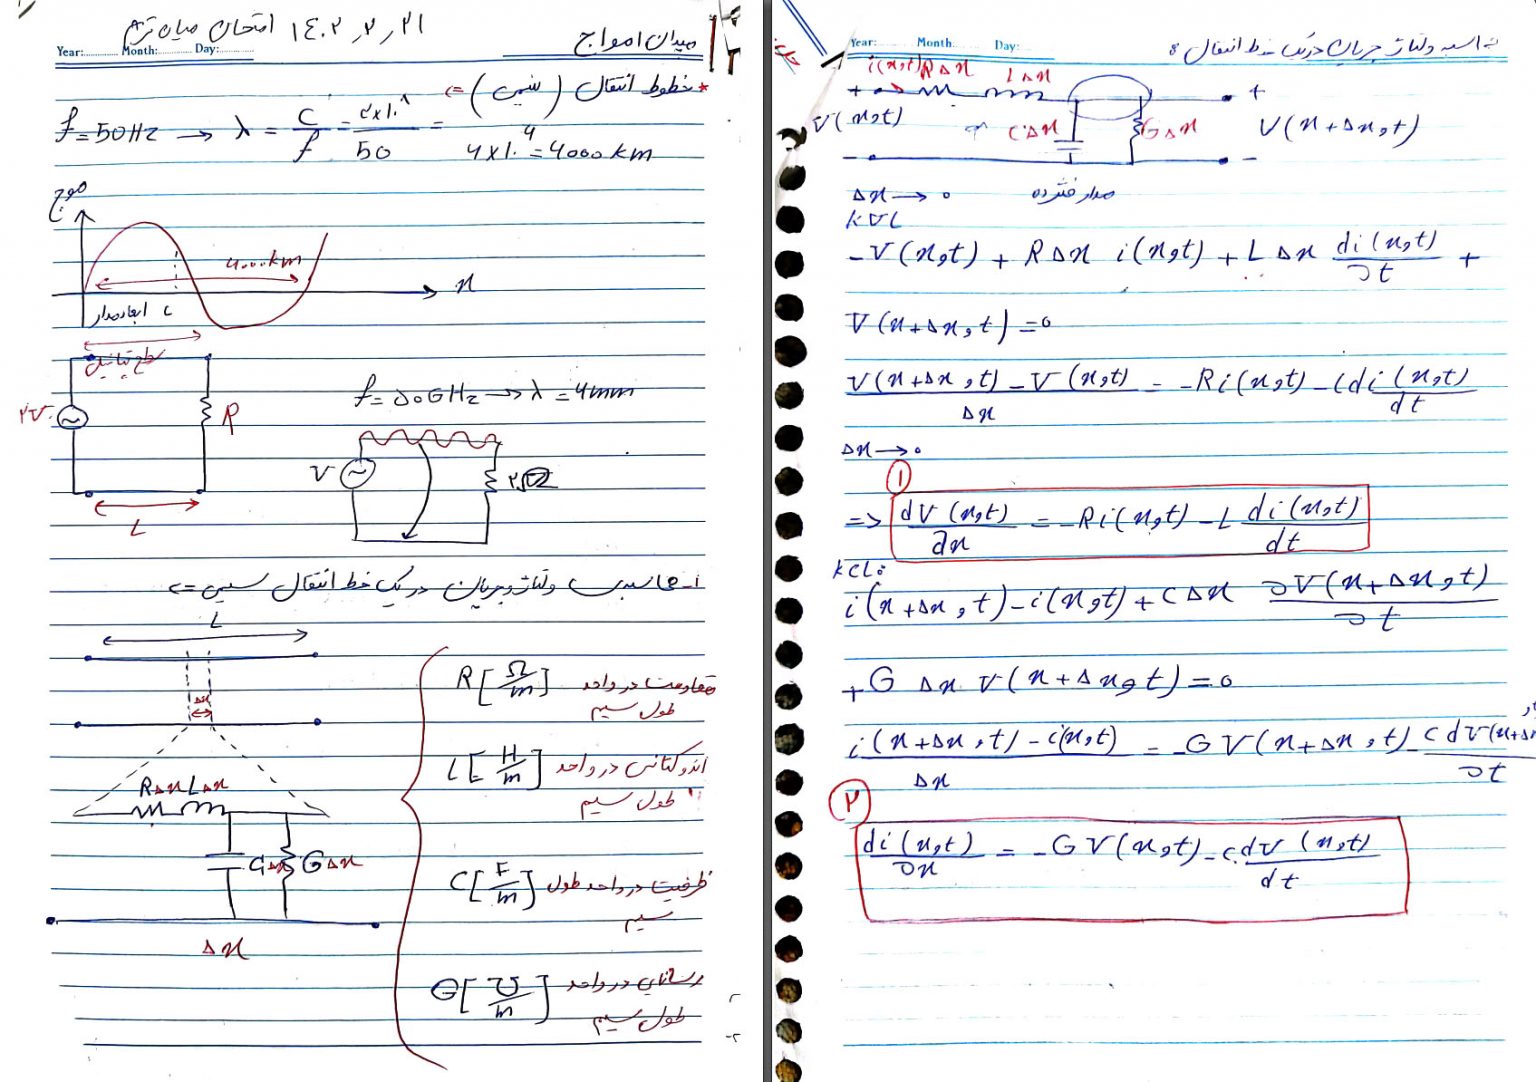 امتحان میان ترم ۱۴۰۲٫۲٫۲۱
میدان امواج
Year: Month: Day:
* خطوط انتقال (سیمی) =>
f=50Hz → λ = C/f = ۳×۱۰^۸/50 = ۶×۱۰^۶ = 6000 km
موج
۶۰۰۰km
x
ابعاد مدار L
سطح پتانسیل
۲V
R
L
f=50GHz → λ = 6mm
V
۲Ω
۱-محاسبه ولتاژ و جریان در یک خط انتقال سیمی =>
L
Δx
RΔx LΔx
CΔx GΔx
Δx
R[Ω/m] مقاومت در واحد
طول سیم
L[H/m] اندوکتانس در واحد
طول سیم
C[F/m] ظرفیت در واحد طول
سیم
G[℧/m] رسانایی در واحد
طول سیم
Year: Month: Day:
محاسبه ولتاژ جریان در یک خط انتقال :
i(x,t) RΔx LΔx
+ +
V(x,t) CΔx GΔx V(x+Δx,t)
- -
Δx → ۰ مدار فشرده
KVL
-V(x,t) + RΔx i(x,t) + LΔx di(x,t)/∂t +
V(x+Δx,t)=0
V(x+Δx,t)-V(x,t)/Δx = -Ri(x,t)-Ldi(x,t)/dt
Δx → ۰
۱
=> dV(x,t)/∂x = -Ri(x,t)-L di(x,t)/dt
KCL:
i(x+Δx,t)-i(x,t)+CΔx ∂V(x+Δx,t)/∂t
+G Δx V(x+Δx,t)=0
i(x+Δx,t)-i(x,t)/Δx = -GV(x+Δx,t)-C dV(x+Δx/∂t
۲
di(x,t)/∂x = -GV(x,t)-C.dV(x,t)/dt